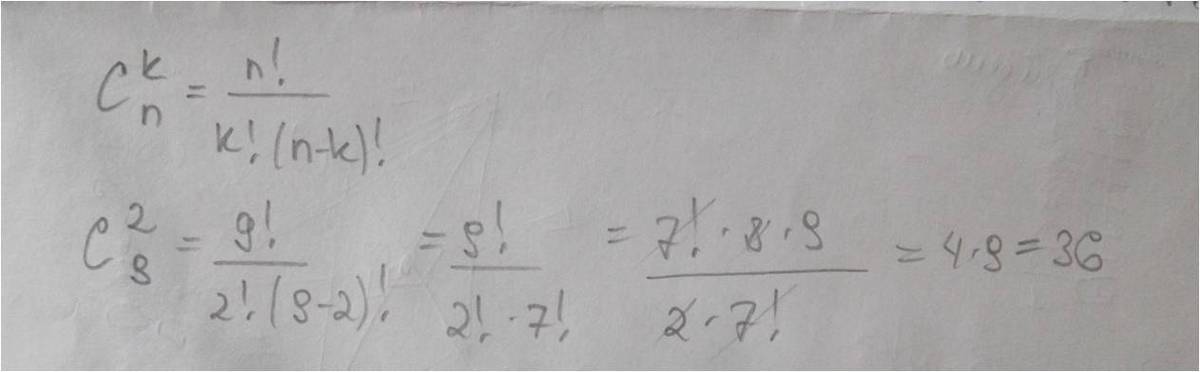 C_n^k = n! / k!(n-k)!
C_9^2 = 9! / 2!(9-2)! = 9! / 2!·7! = 7!·8·9 / 2·7! = 4·9 = 36